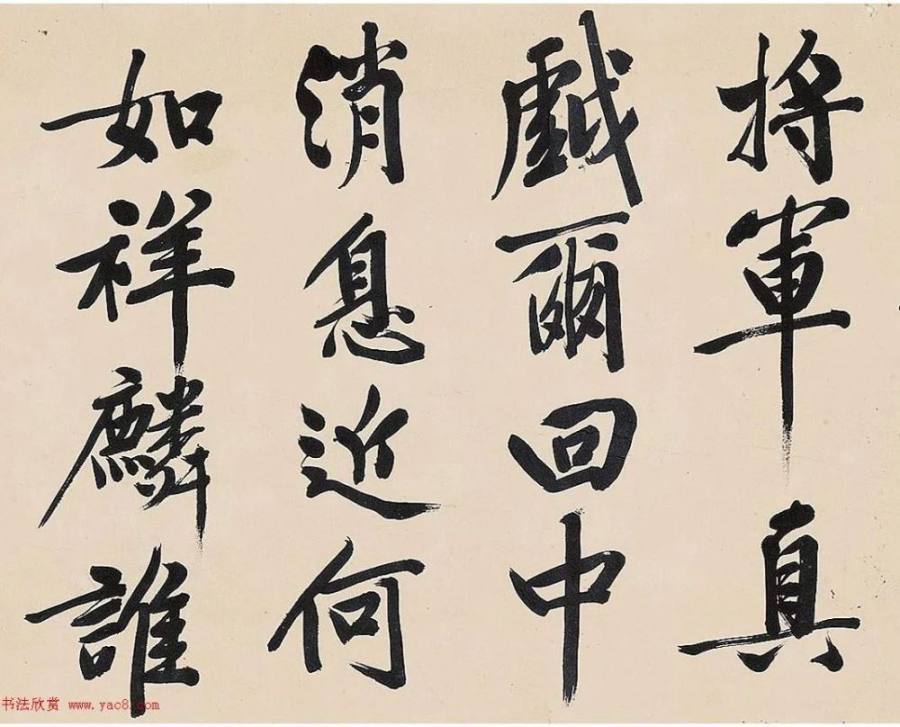 将軍真
戯爾回中
消息近何
如祥麟誰
书法欣赏 www.yac8.com